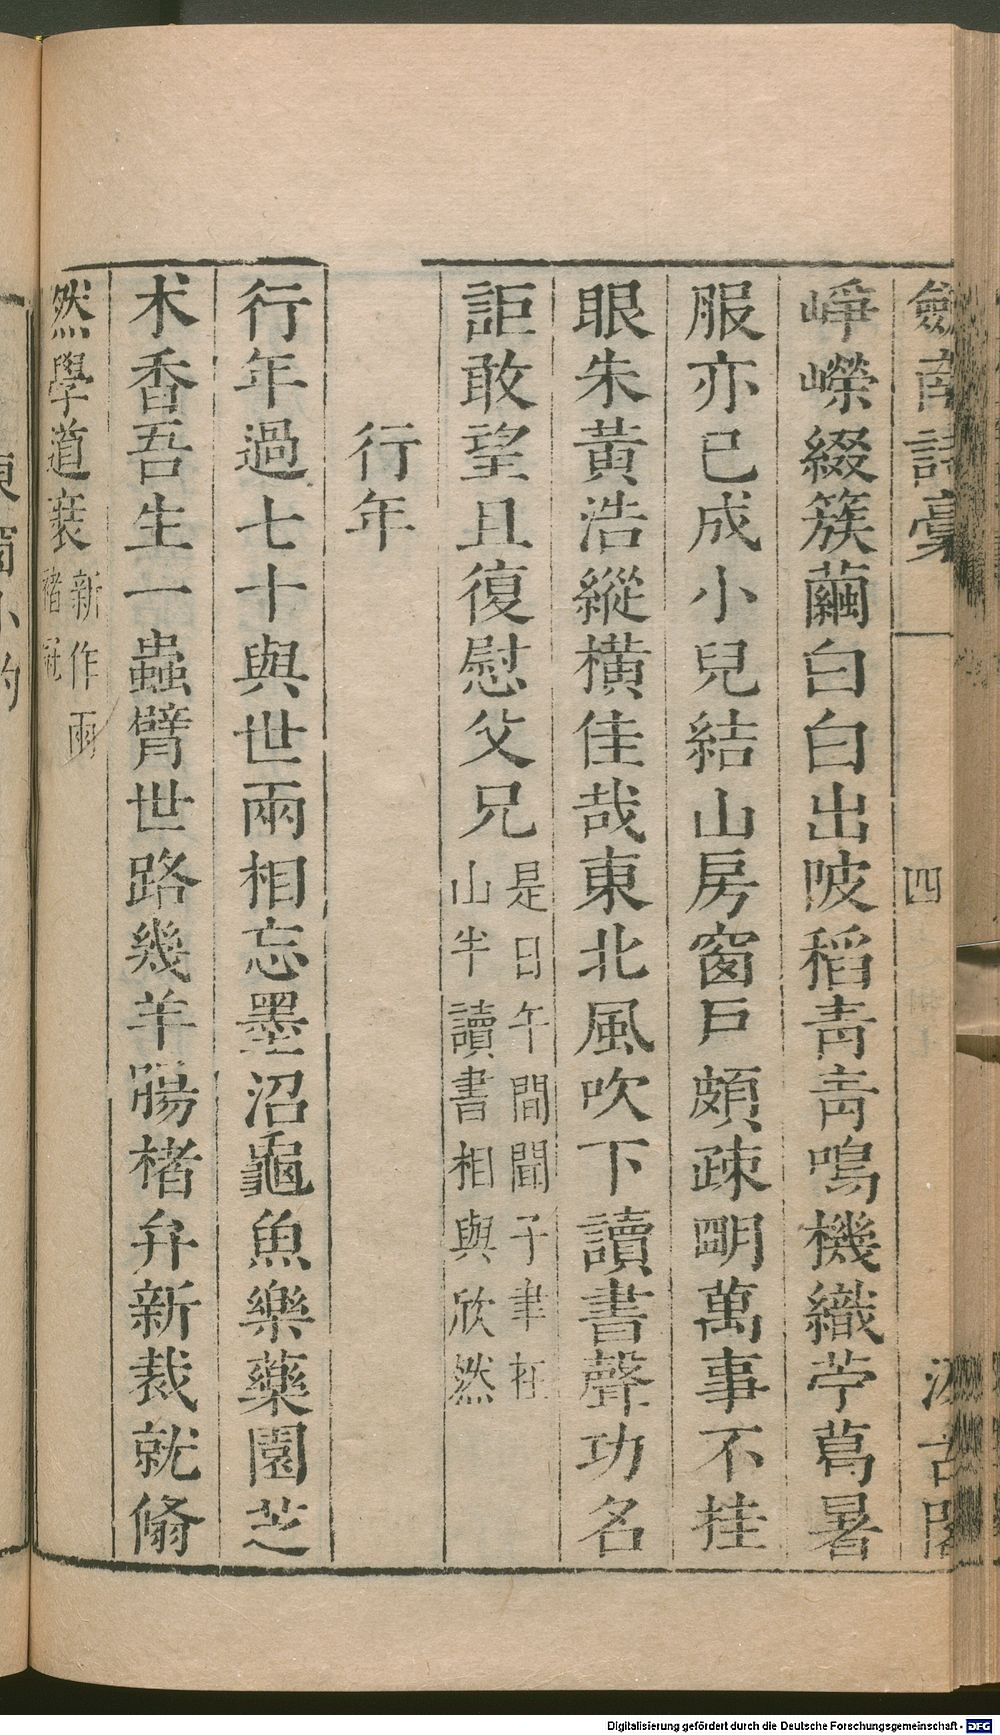 劔南詩稾
四
汲古閣
崢嶸綴簇繭白白出陂稻青青鳴機織苧葛暑
服亦已成小兒結山房窗戶頗疎朙萬事不挂
眼朱黃浩縱橫佳哉東北風吹下讀書聲功名
詎敢望且復慰父兄
是日午間聞子聿在
山半讀書相與欣然
行年
行年過七十與世兩相忘墨沼龜魚樂藥園芝
朮香吾生一蟲臂世路幾羊腸楮弁新裁就翛
然學道裝
新作兩
楮冠
Digitalisierung gefördert durch die Deutsche Forschungsgemeinschaft - DFG